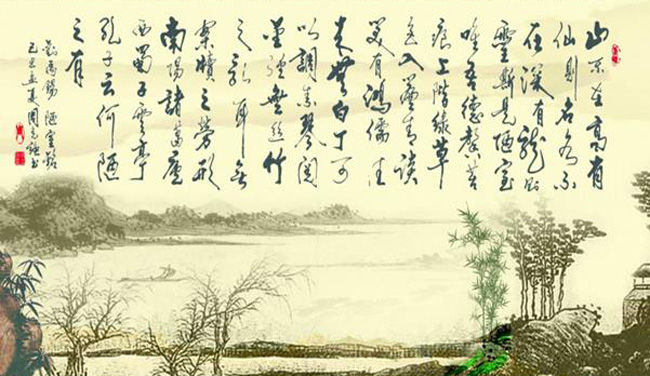 山不在高有
仙則名水不
在深有龍則
靈斯是陋室
唯吾德馨苔
痕上階綠草
色入簾青談
笑有鴻儒往
來無白丁可
以調素琴閱
金經無絲竹
之亂耳無
案牘之勞形
南陽諸葛廬
西蜀子雲亭
孔子云何陋
之有
劉禹錫陋室銘
己丑孟夏周